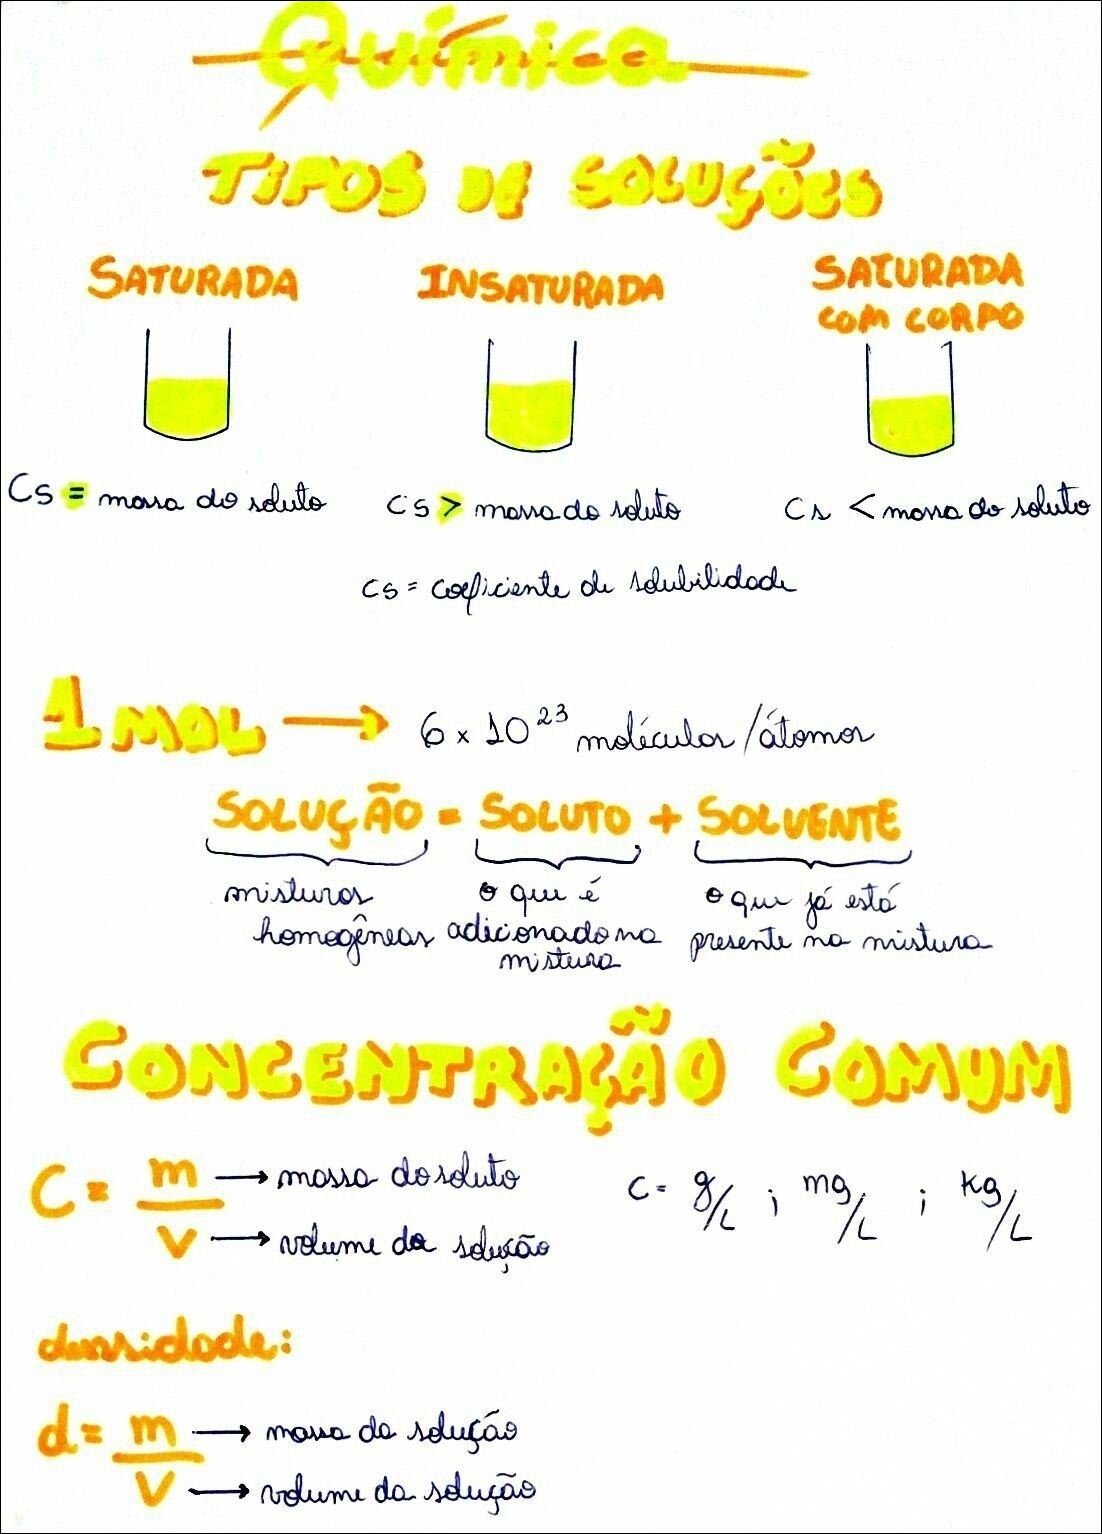 Química
TIPOS DE SOLUÇÕES
SATURADA
Cs = massa do soluto
INSATURADA
Cs > massa do soluto
SATURADA
COM CORPO
Cs < massa do soluto
Cs = coeficiente de solubilidade
1 MOL → 6 x 10²³ moléculas/átomos
SOLUÇÃO = SOLUTO + SOLVENTE
misturas
homogêneas
o que é
adicionado na
mistura
o que já está
presente na mistura
CONCENTRAÇÃO COMUM
C = m → massa do soluto
V → volume da solução
C = g/L ; mg/L ; kg/L
densidade:
d = m → massa da solução
V → volume da solução